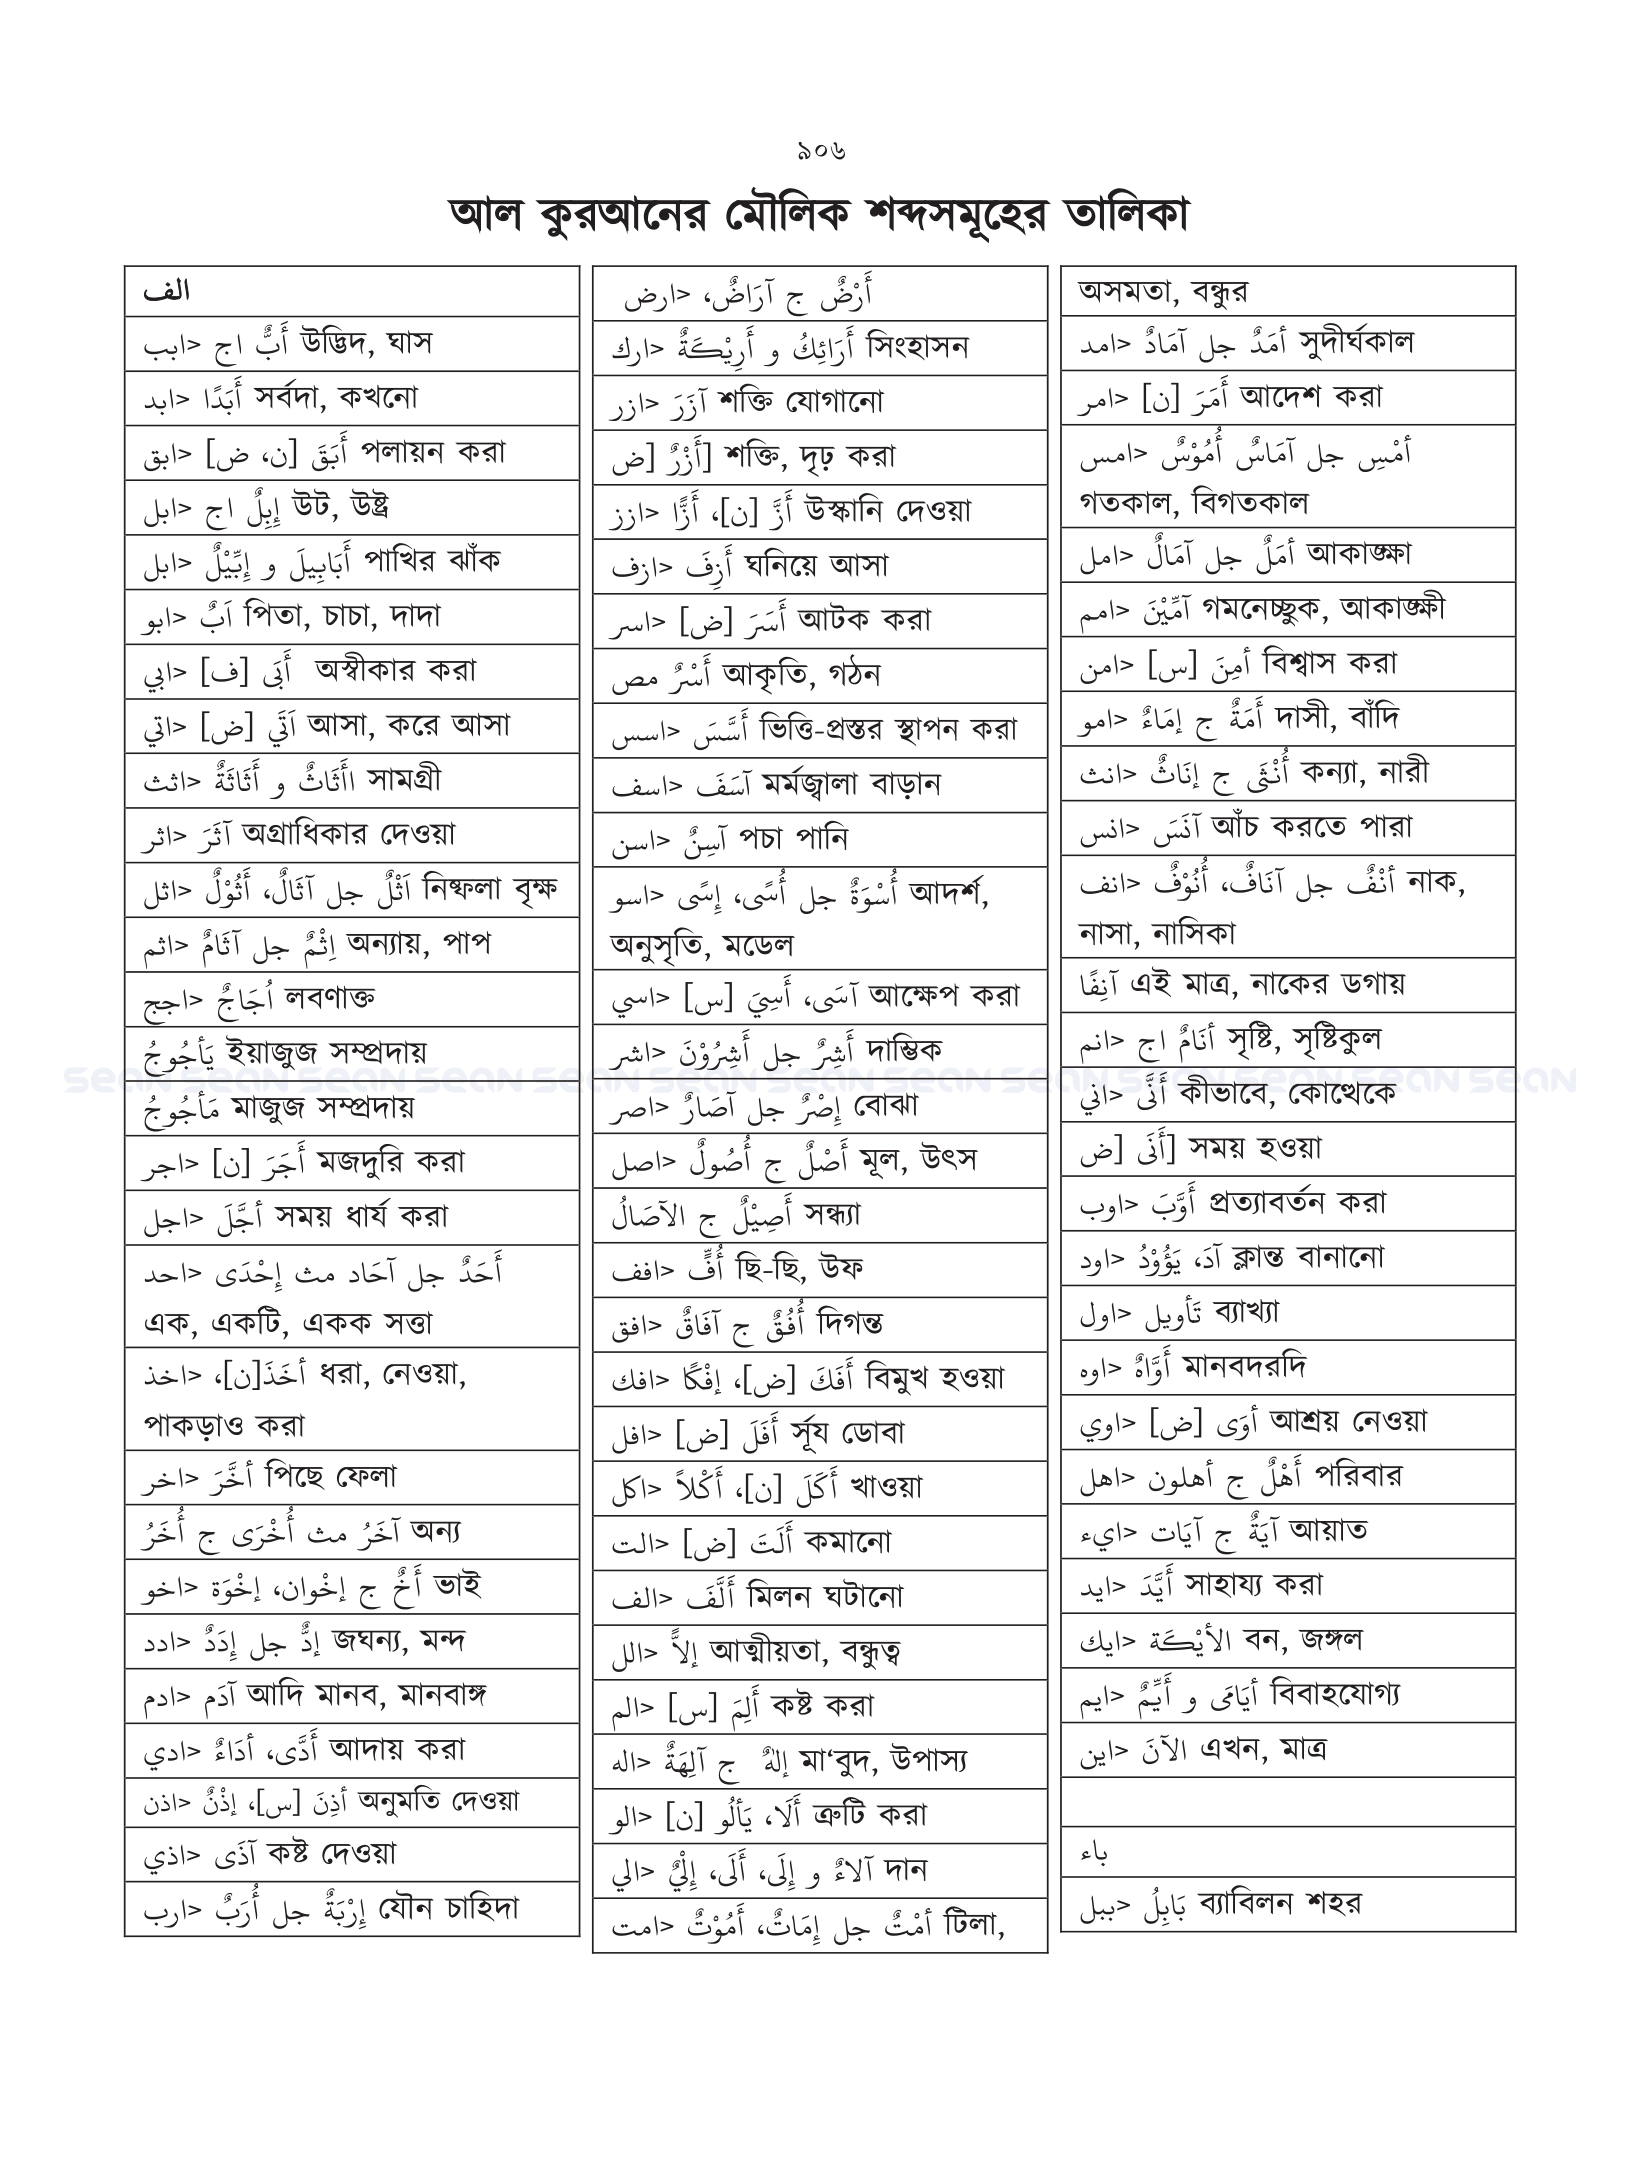 ৯০৬
আল কুরআনের মৌলিক শব্দসমূহের তালিকা
الف
ابب> أَبٌّ اج উদ্ভিদ, ঘাস
ابد> أَبَدًا সর্বদা, কখনো
ابق> أَبَقَ [ن، ض] পলায়ন করা
ابل> إِبِلٌ اج উট, উষ্ট্র
ابل> أَبَابِيلَ و إِبِّيْلٌ পাখির ঝাঁক
ابو> اَبٌ পিতা, চাচা, দাদা
ابي> أَبَى [ف] অস্বীকার করা
اتي> اَتَي [ض] আসা, করে আসা
اثث> اأَثَاثٌ و أَثَاثَةٌ সামগ্রী
اثر> آثَرَ অগ্রাধিকার দেওয়া
اثل> اَثْلٌ جل آثَالٌ، أَثُوْلٌ নিষ্ফলা বৃক্ষ
اثم> اِثْمٌ جل آثَامٌ অন্যায়, পাপ
اجج> اُجَاجٌ লবণাক্ত
يَأجُوجُ ইয়াজুজ সম্প্রদায়
مَأجُوجُ মাজুজ সম্প্রদায়
اجر> أَجَرَ [ن] মজদুরি করা
اجل> أجَّلَ সময় ধার্য করা
احد> أَحَدٌ جل آحَاد مث إِحْدَى
এক, একটি, একক সত্তা
اخذ> أخَذَ[ن]، ধরা, নেওয়া,
পাকড়াও করা
اخر> أخَّرَ পিছে ফেলা
آخَرُ مث أُخْرَى ج أُخَرُ অন্য
اخو> أَخٌ ج إخْوان، إخْوَة ভাই
ادد> إدٌّ جل إِدَدٌ জঘন্য, মন্দ
ادم> آدَم আদি মানব, মানবাঙ্গ
ادي> أَدَّى، أدَاءٌ আদায় করা
اذن> أذِنَ [س]، إذْنٌ অনুমতি দেওয়া
اذي> آذَى কষ্ট দেওয়া
ارب> إِرْبَةٌ جل أُرَبٌ যৌন চাহিদা
ارض> أَرْضٌ ج آرَاضٌ،
ارك> أَرَائِكُ و أَرِيْكَةٌ সিংহাসন
ازر> آزَرَ শক্তি যোগানো
أَزْرٌ [ض] শক্তি, দৃঢ় করা
ازز> أَزَّ [ن]، أَزًّا উস্কানি দেওয়া
ازف> أَزِفَ ঘনিয়ে আসা
اسر> أَسَرَ [ض] আটক করা
أَسْرٌ مص আকৃতি, গঠন
اسس> أَسَّسَ ভিত্তি-প্রস্তর স্থাপন করা
اسف> آسَفَ মর্মজ্বালা বাড়ান
اسن> آسِنٌ পচা পানি
اسو> أُسْوَةٌ جل أُسًى، إِسًى আদর্শ,
অনুসৃতি, মডেল
اسي> آسَى، أَسِيَ [س] আক্ষেপ করা
اشر> أَشِرٌ جل أَشِرُوْنَ দাম্ভিক
اصر> إِصْرٌ جل آصَارٌ বোঝা
اصل> أَصْلٌ ج أُصُولٌ মূল, উৎস
أَصِيْلٌ ج الآصَالُ সন্ধ্যা
افف> أُفٍّ ছি-ছি, উফ
افق> أُفُقٌ ج آفَاقٌ দিগন্ত
افك> أَفَكَ [ض]، إفْكًا বিমুখ হওয়া
افل> أَفَلَ [ض] র্সূয ডোবা
اكل> أَكَلَ [ن]، أَكْلاً খাওয়া
الت> أَلَتَ [ض] কমানো
الف> أَلَّفَ মিলন ঘটানো
الل> إلاًّ আত্মীয়তা, বন্ধুত্ব
الم> أَلِمَ [س] কষ্ট করা
اله> إلهٌ ج آلِهَةٌ মা‘বুদ, উপাস্য
الو> أَلَا، يَألُو [ن] ত্রুটি করা
الي> آلاءٌ و إِلَى، أَلَى، إِلْيٌ দান
امت> أمْتٌ جل إِمَاتٌ، أَمُوْتٌ টিলা,
অসমতা, বন্ধুর
امد> أمَدٌ جل آمَادٌ সুদীর্ঘকাল
امر> أَمَرَ [ن] আদেশ করা
امس> أمْسِ جل آمَاسٌ أُمُوْسٌ
গতকাল, বিগতকাল
امل> أمَلٌ جل آمَالٌ আকাঙ্ক্ষা
امم> آمِّيْنَ গমনেচ্ছুক, আকাঙ্ক্ষী
امن> أمِنَ [س] বিশ্বাস করা
امو> أَمَةٌ ج إمَاءٌ দাসী, বাঁদি
انث> أُنْثَى ج إنَاثٌ কন্যা, নারী
انس> آنَسَ আঁচ করতে পারা
انف> أنْفٌ جل آنَافٌ، أُنُوْفٌ নাক,
নাসা, নাসিকা
آنِفًا এই মাত্র, নাকের ডগায়
انم> أنَامٌ اج সৃষ্টি, সৃষ্টিকুল
اني> أَنَّى কীভাবে, কোত্থেকে
أَنَى [ض] সময় হওয়া
اوب> أَوَّبَ প্রত্যাবর্তন করা
اود> آدَ، يَؤُوْدُ ক্লান্ত বানানো
اول> تَأويل ব্যাখ্যা
اوه> أَوَّاهٌ মানবদরদি
اوي> أوَى [ض] আশ্রয় নেওয়া
اهل> أَهْلٌ ج أهلون পরিবার
ايء> آيَةٌ ج آيَات আয়াত
ايد> أَيَّدَ সাহায্য করা
ايك> الأيْكَة বন, জঙ্গল
ايم> أيَامَى و أَيِّمٌ বিবাহযোগ্য
اين> الآنَ এখন, মাত্র
باء
ببل> بَابِلُ ব্যাবিলন শহর
sean sean sean sean sean sean sean sean sean sean sean sean sean